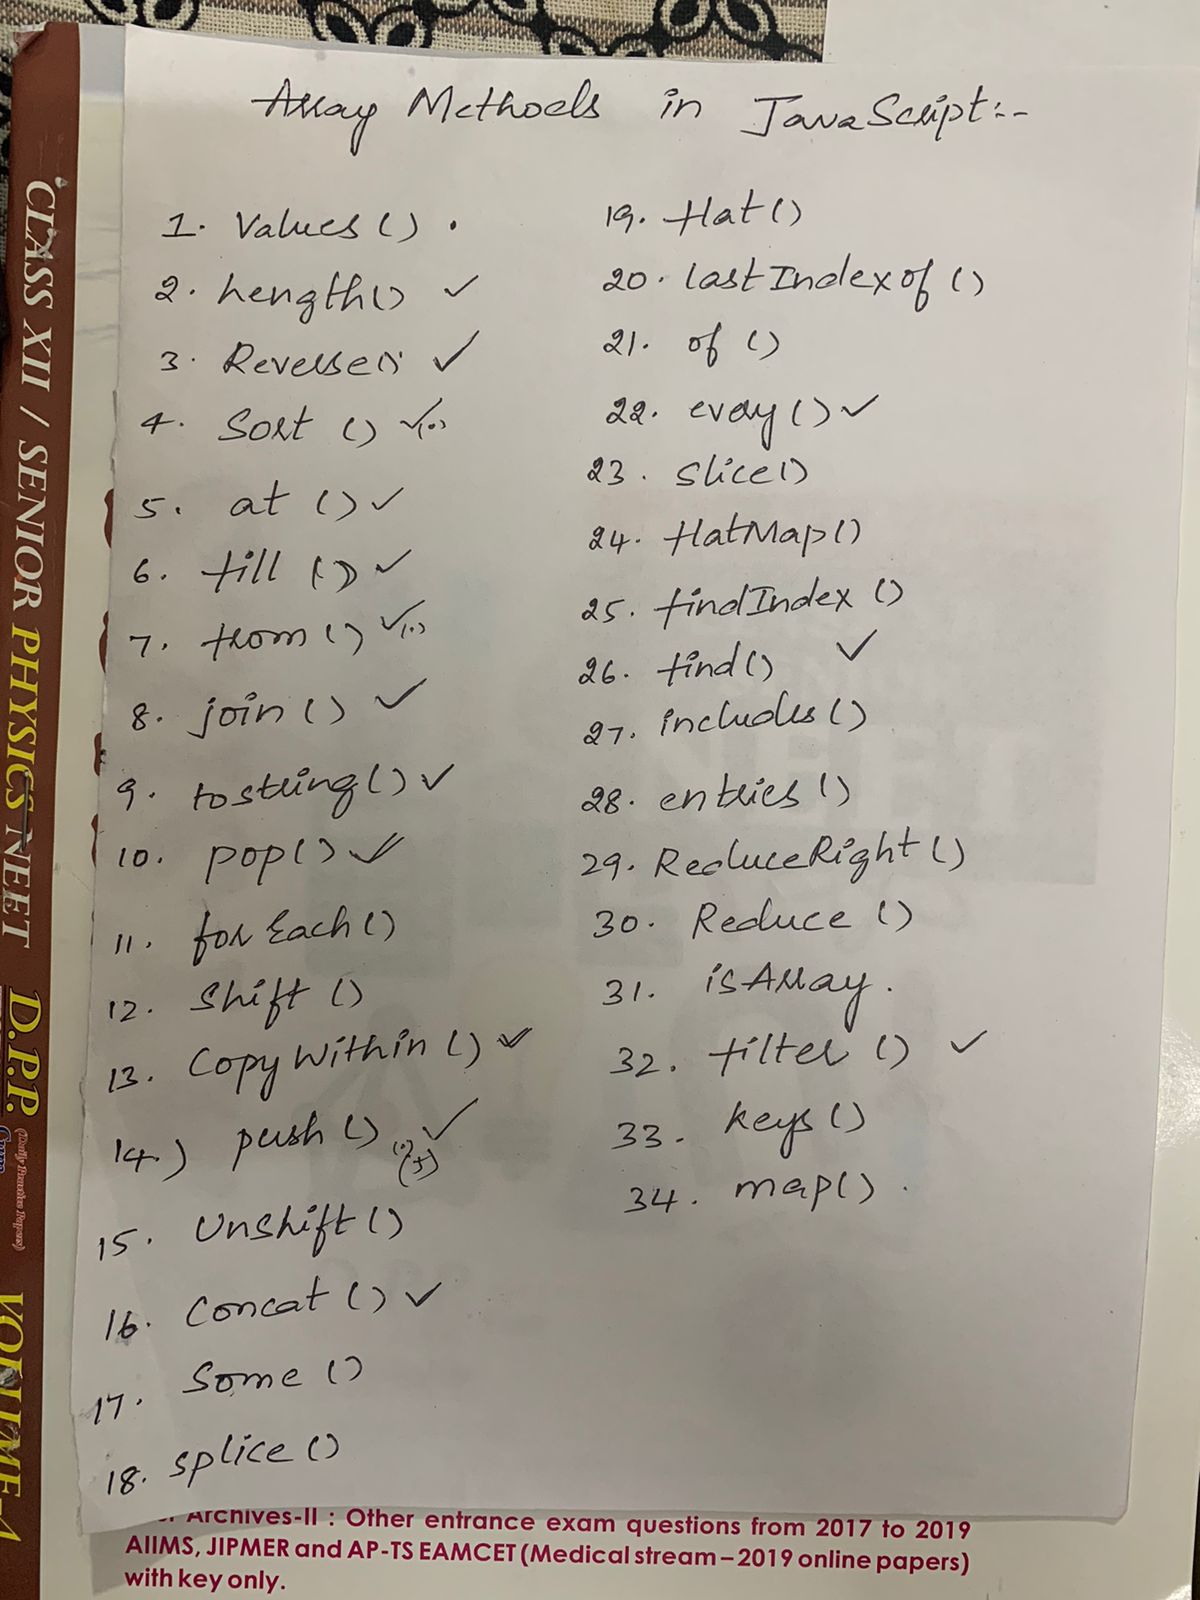 Array Methods in JavaScript:-
1. Values ( ) .
2. Length() ✓
3. Reverse() ✓
4. Sort () ✓(.)
5. at () ✓
6. fill () ✓
7. from () ✓(.)
8. join () ✓
9. tostring () ✓
10. pop() ✓
11. for Each ()
12. Shift ()
13. Copy Within () ✓
14.) push () ✓
15. Unshift ()
16. Concat () ✓
17. Some ()
18. splice ()
19. flat ()
20. last Index of ()
21. of ()
22. every () ✓
23. Slice ()
24. flatMap ()
25. findIndex ()
26. find () ✓
27. includes ()
28. entries ()
29. ReduceRight ()
30. Reduce ()
31. isArray .
32. filter () ✓
33. keys ()
34. map() .
CLASS XII / SENIOR PHYSICS NEET D.P.P. (Daily Practice Papers) VOLUME-A
Archives-II : Other entrance exam questions from 2017 to 2019
AIIMS, JIPMER and AP-TS EAMCET (Medical stream – 2019 online papers)
with key only.